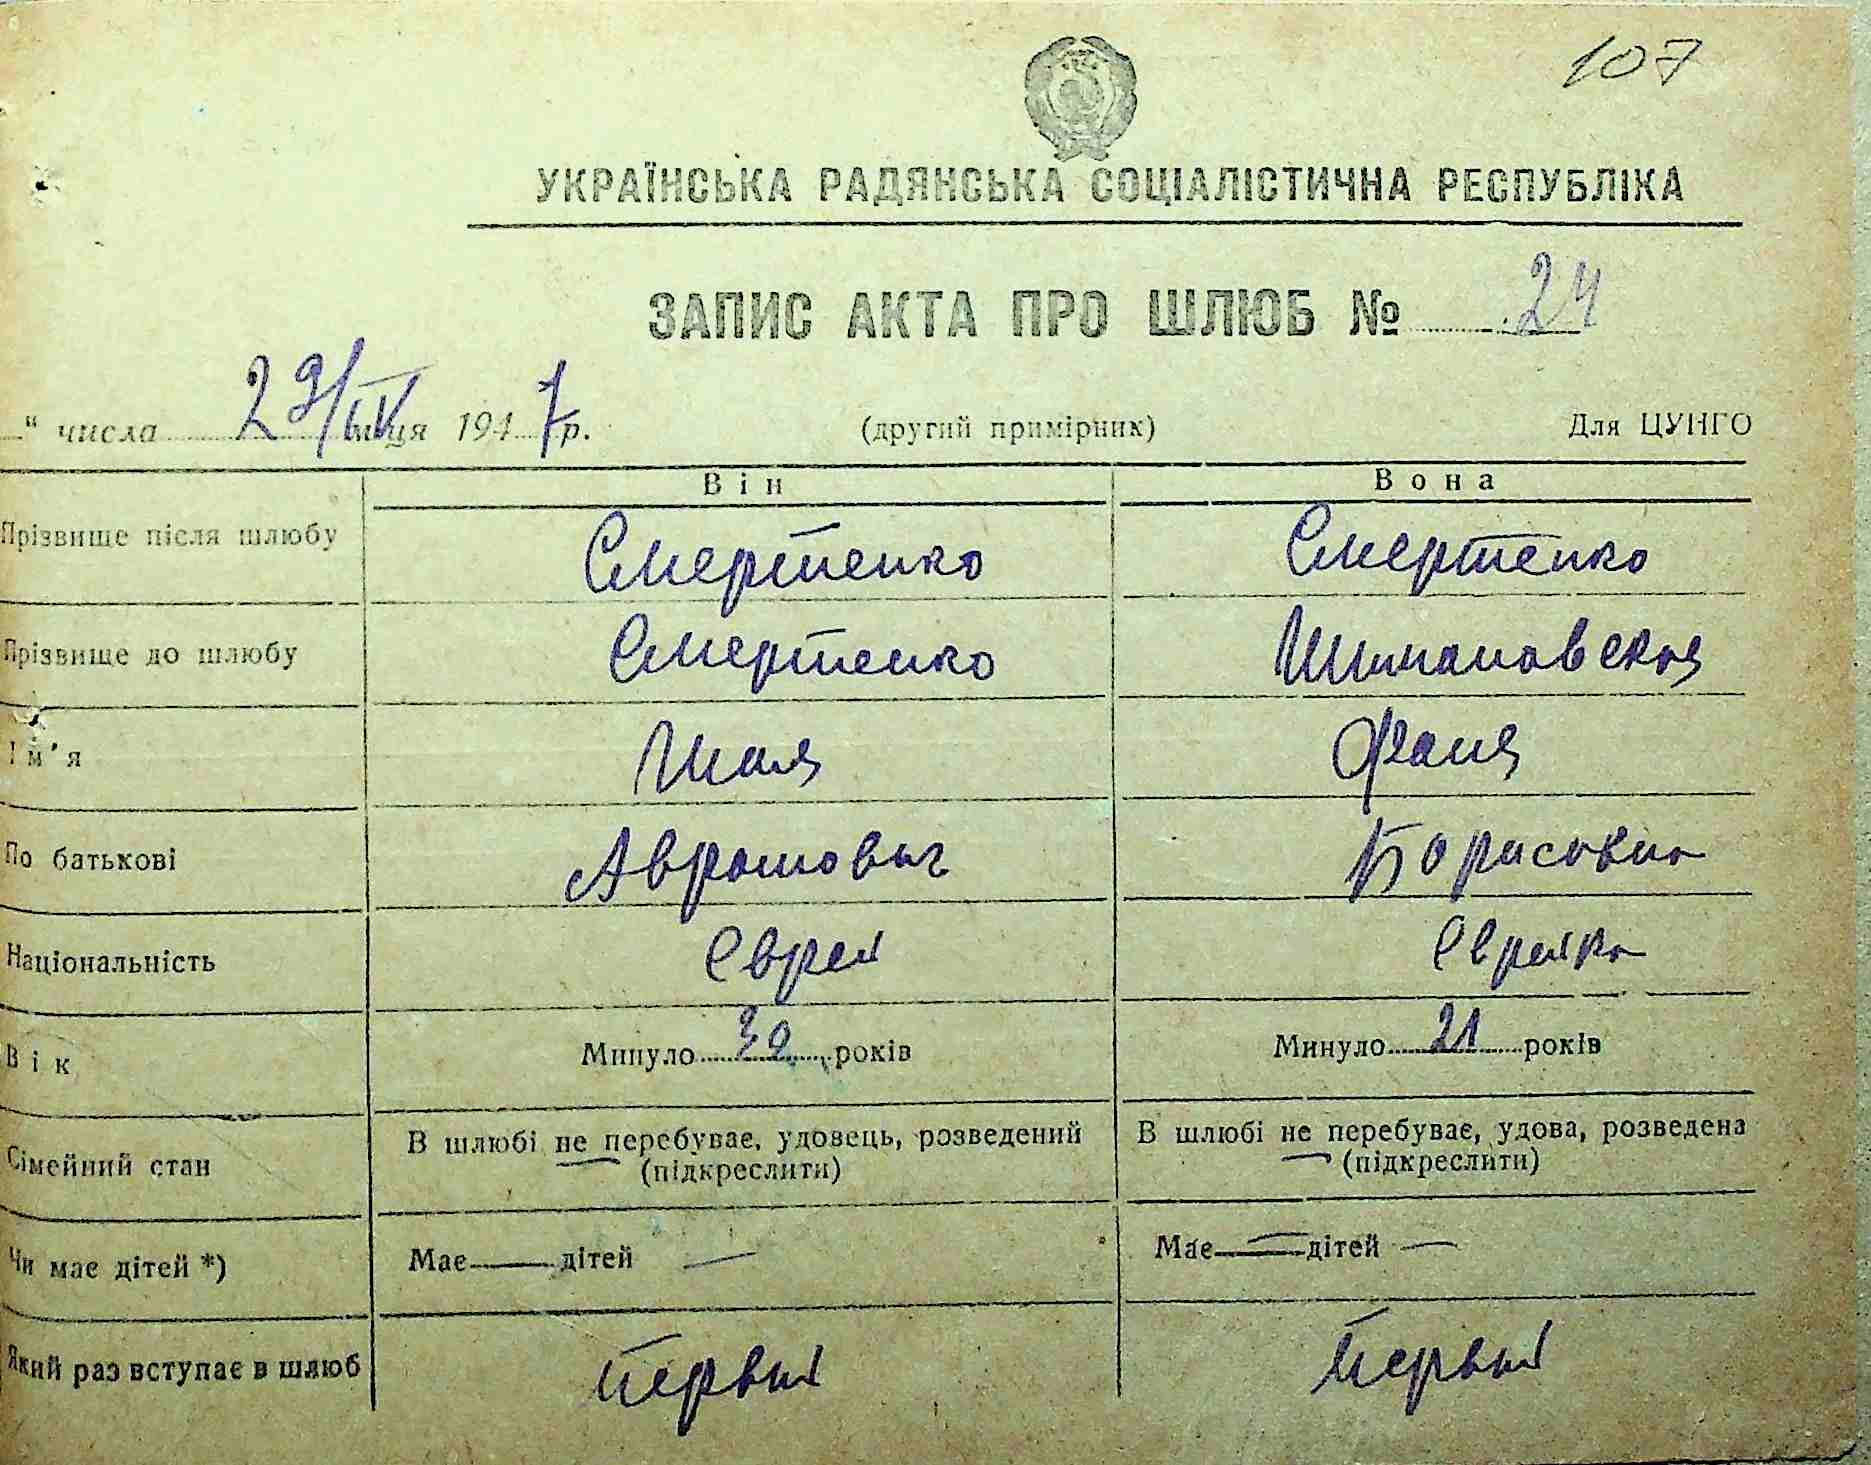 107
УКРАЇНСЬКА РАДЯНСЬКА СОЦІАЛІСТИЧНА РЕСПУБЛІКА
ЗАПИС АКТА ПРО ШЛЮБ № 24
“ числа 29/IV місяця 1947 р. (другий примірник) Для ЦУНГО
Він Вона
Прізвище після шлюбу Смертенко Смертенко
Прізвище до шлюбу Смертенко Шимановская
Ім'я Фаня
По батькові Аврамович Борисовна
Національність Еврей Еврейка
Вік Минуло 30 років Минуло 21 років
Сімейний стан В шлюбі не перебуває, удовець, розведений В шлюбі не перебуває, удова, розведена
(підкреслити) (підкреслити)
Чи має дітей *) Має — дітей — Має — дітей —
Який раз вступає в шлюб первый первый